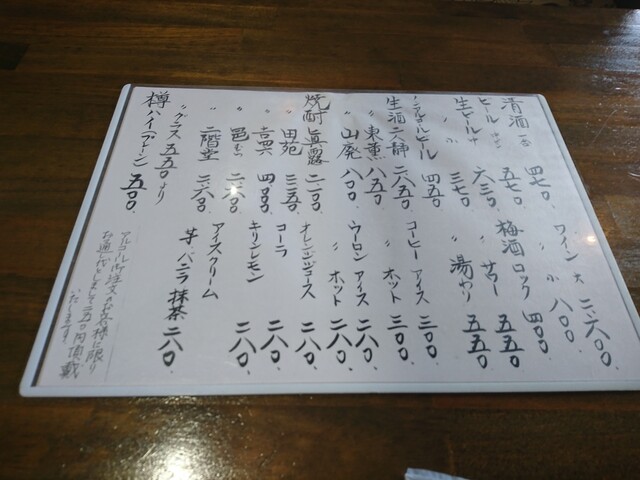 清酒 一合 四七〇.
ビール 中ビン 五七〇
生ビール 中 六三〇
〃 小 三七〇
ノンアルコールビール 四五〇
生酒 二人静 二八五〇
〃 東薫 八五〇
〃 山廃 八〇〇
焼酎 眞露 二一〇〇
〃 田苑 三三五〇
〃 吉四六 四〇〇〇
〃 二六〇〇
〃 二階堂 二六〇〇
樽ハイ(プレーン) 五〇〇
〃グラス 五五〇より
ワイン 大 二六〇〇.
〃 小 八〇〇.
梅酒 ロック 四〇〇
〃 サワー 五五〇
〃 湯わり 五五〇
コーヒー アイス 三〇〇
〃 ホット 三〇〇
ウーロン アイス 二八〇.
〃 ホット 二八〇.
オレンジジュース 二八〇.
コーラ 二八〇.
キリンレモン 二八〇.
アイスクリーム
芋 バニラ 抹茶 二八〇.
アルコール御注文のお客様に限り
お通し代として二五〇円頂戴
いたします.